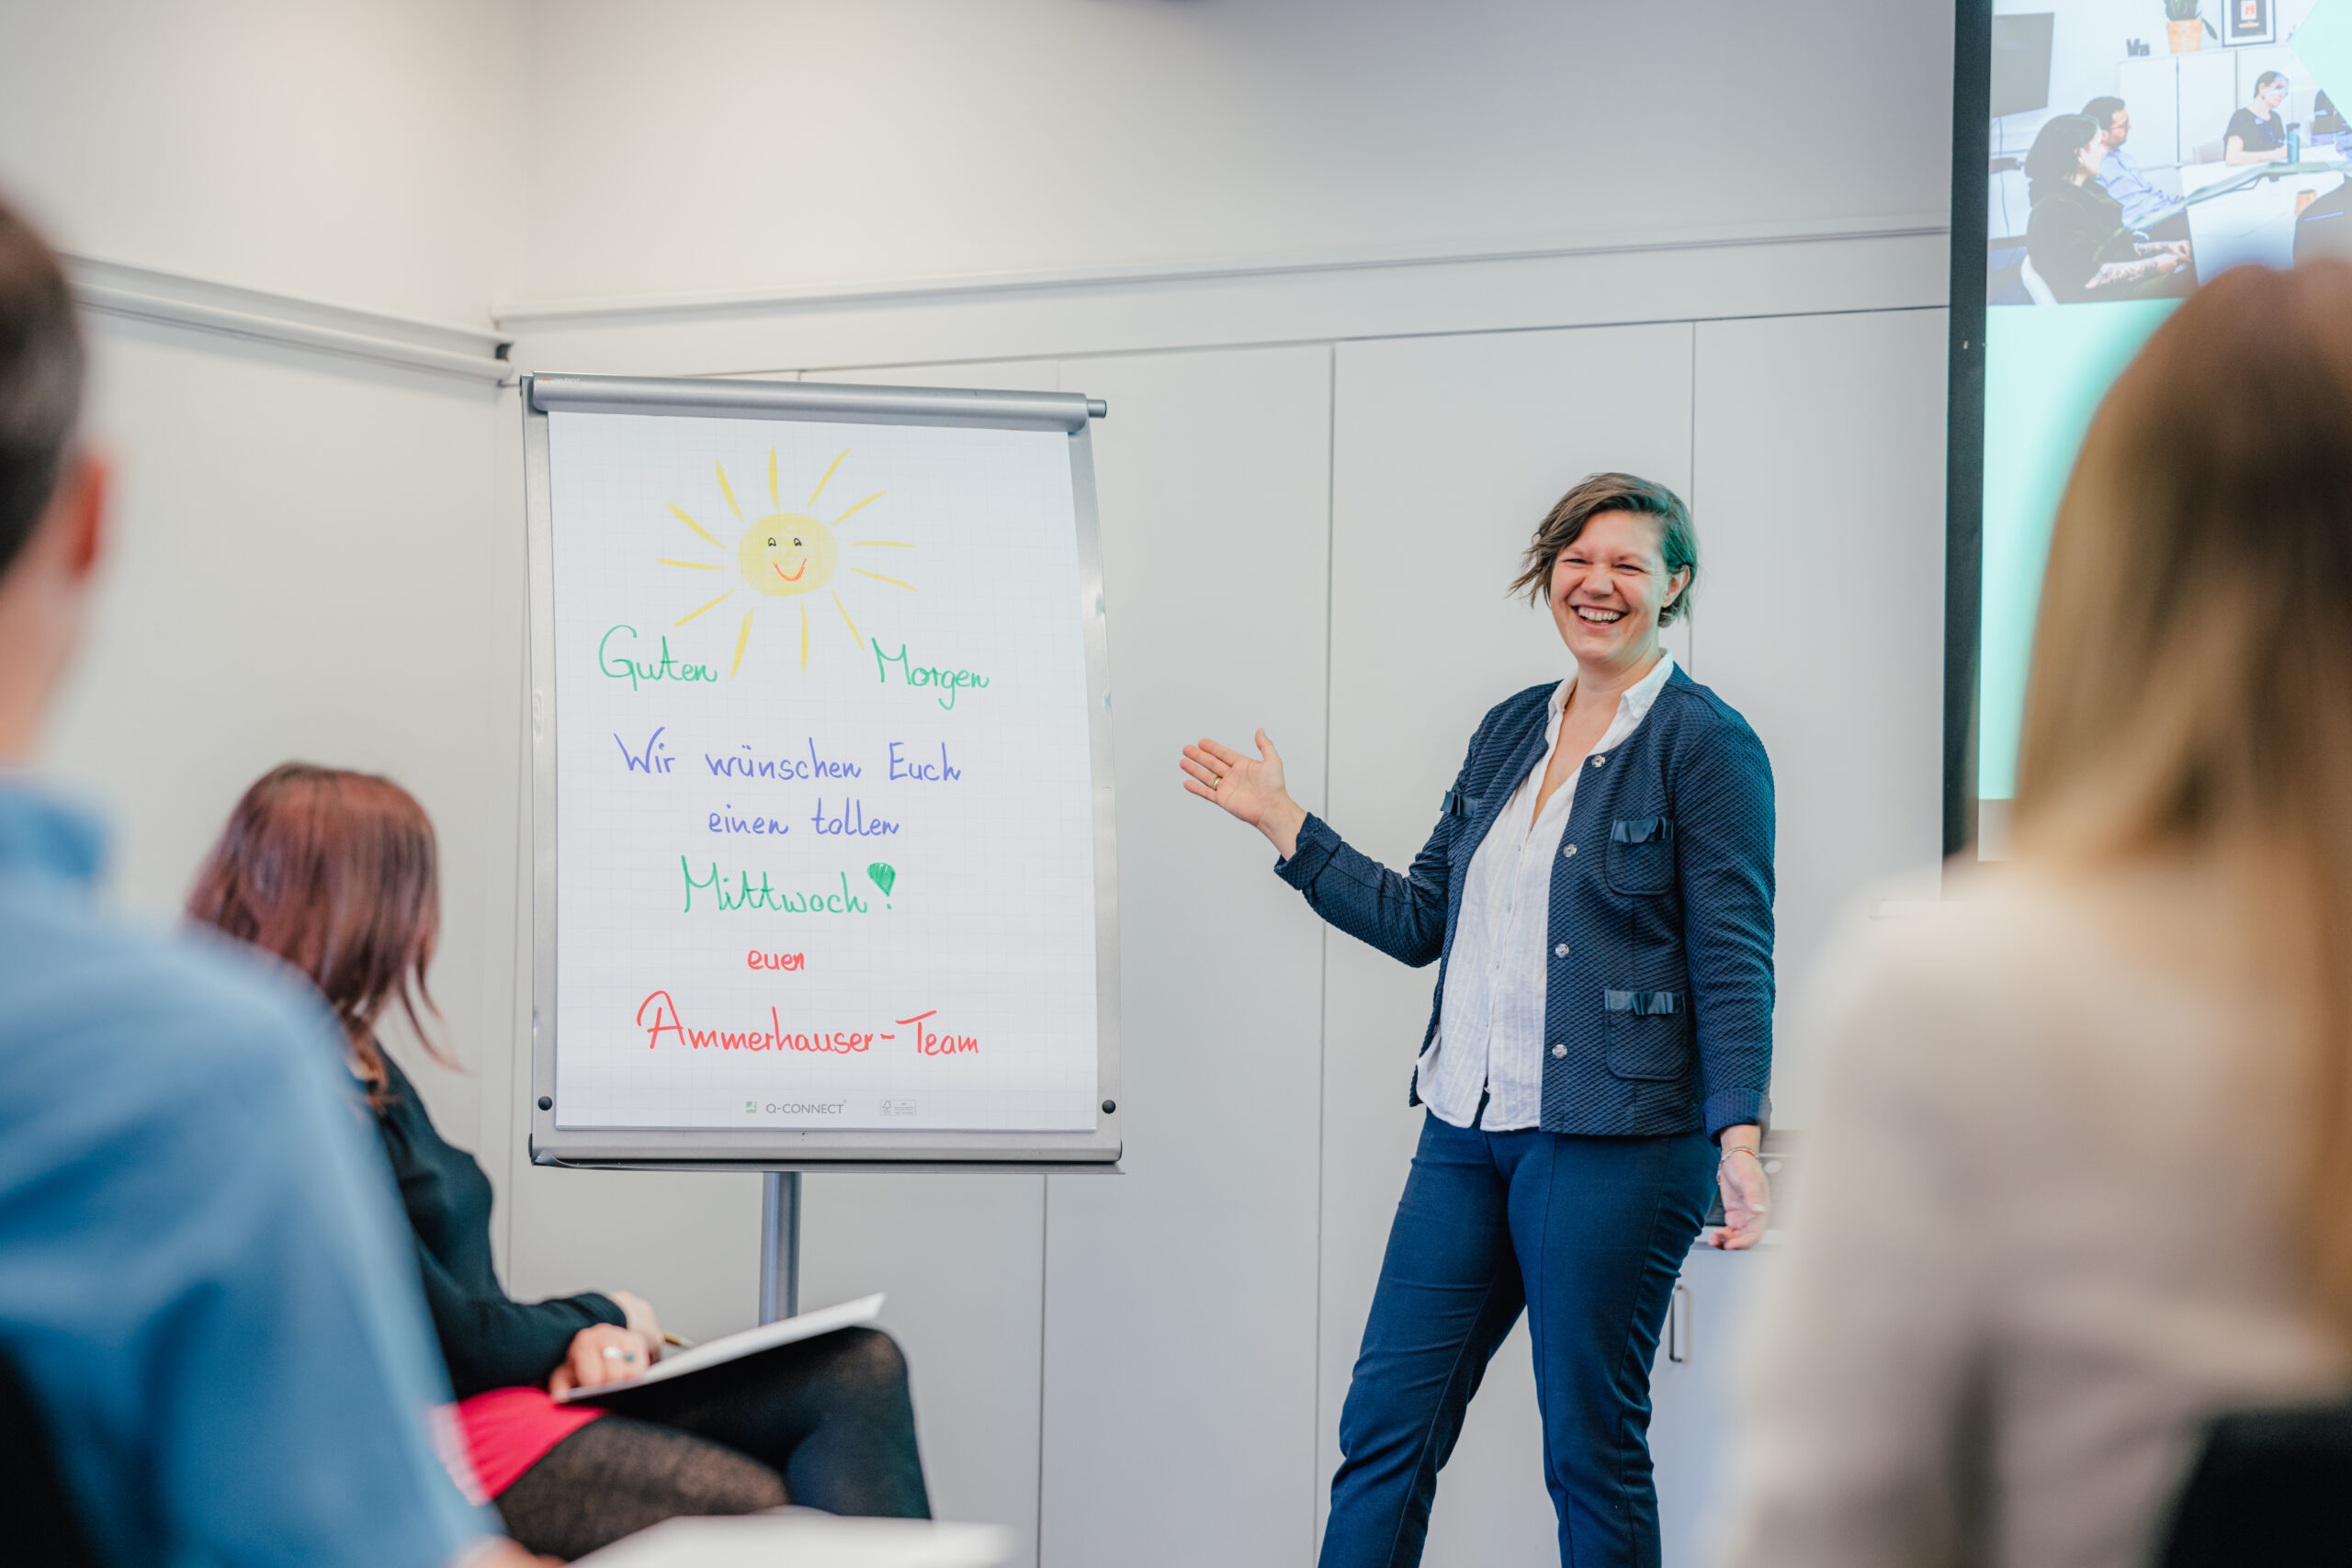 Guten Morgen
Wir wünschen Euch
einen tollen
Mittwoch!
euer
Ammerhauser-Team
Q-CONNECT